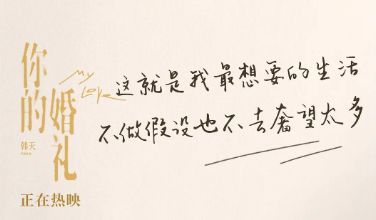 你的婚礼
My Love
韩天
正在热映
这就是我最想要的生活
不做假设也不去奢望太多